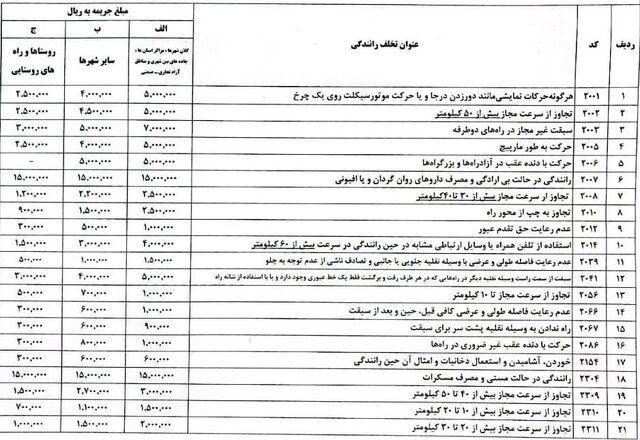 ردیف کد عنوان تخلف رانندگی مبلغ جریمه به ریال
الف ب ج
کلان شهرها ، مراکز استان ها ، جاده های بین شهری و مناطق آزاد تجاری - صنعتی سایر شهرها روستاها و راه های روستایی
۱ ۲۰۰۱ هرگونه حرکات نمایشی مانند دورزدن درجا و یا حرکت موتورسیکلت روی یک چرخ ۵,۰۰۰,۰۰۰ ۴,۰۰۰,۰۰۰ ۲,۵۰۰,۰۰۰
۲ ۲۰۰۲ تجاوز از سرعت مجاز بیش از ۵۰ کیلومتر ۵,۰۰۰,۰۰۰ ۴,۵۰۰,۰۰۰ ۲,۵۰۰,۰۰۰
۳ ۲۰۰۳ سبقت غیر مجاز در راه‌های دوطرفه ۷,۰۰۰,۰۰۰ ۵,۰۰۰,۰۰۰ ۳,۰۰۰,۰۰۰
۴ ۲۰۰۵ حرکت به طور مارپیچ ۵,۰۰۰,۰۰۰ ۴,۰۰۰,۰۰۰ ۲,۵۰۰,۰۰۰
۵ ۲۰۰۶ حرکت با دنده عقب در آزادراه‌ها و بزرگراه‌ها ۵,۰۰۰,۰۰۰ ۵,۰۰۰,۰۰۰ -
۶ ۲۰۰۷ رانندگی در حالت بی ارادگی و مصرف داروهای روان گردان و یا افیونی ۱۵,۰۰۰,۰۰۰ ۱۵,۰۰۰,۰۰۰ ۱۵,۰۰۰,۰۰۰
۷ ۲۰۰۸ تجاوز از سرعت مجاز بیش از ۳۰ تا ۴۰ کیلومتر ۲,۵۰۰,۰۰۰ ۲,۲۰۰,۰۰۰ ۱,۲۰۰,۰۰۰
۸ ۲۰۱۰ تجاوز به چپ از محور راه ۲,۵۰۰,۰۰۰ ۱,۵۰۰,۰۰۰ ۹۰۰,۰۰۰
۹ ۲۰۱۲ عدم رعایت حق تقدم عبور ۱,۰۰۰,۰۰۰ ۵۰۰,۰۰۰ ۳۰۰,۰۰۰
۱۰ ۲۰۱۴ استفاده از تلفن همراه یا وسایل ارتباطی مشابه در حین رانندگی در سرعت بیش از ۶۰ کیلومتر ۴,۰۰۰,۰۰۰ ۳,۰۰۰,۰۰۰ ۱,۵۰۰,۰۰۰
۱۱ ۲۰۳۹ عدم رعایت فاصله طولی و عرضی با وسیله نقلیه جلویی یا جانبی و تصادف ناشی از عدم توجه به جلو ۱,۵۰۰,۰۰۰ ۱,۰۰۰,۰۰۰ ۵۰۰,۰۰۰
۱۲ ۲۰۴۱ سبقت از سمت راست وسیله نقلیه دیگر در راه‌هایی که در هر طرف رفت و برگشت فقط یک خط عبوری وجود دارد و یا با استفاده از شانه راه ۵,۰۰۰,۰۰۰ ۴,۰۰۰,۰۰۰ ۳,۰۰۰,۰۰۰
۱۳ ۲۰۵۶ تجاوز از سرعت مجاز تا ۱۰ کیلومتر ۱,۰۰۰,۰۰۰ ۷۰۰,۰۰۰ ۵۰۰,۰۰۰
۱۴ ۲۰۶۶ عدم رعایت فاصله طولی و عرضی کافی قبل، حین و بعد از سبقت ۱,۰۰۰,۰۰۰ ۶۰۰,۰۰۰ ۳۰۰,۰۰۰
۱۵ ۲۰۶۷ راه ندادن به وسیله نقلیه پشت سر برای سبقت ۹۰۰,۰۰۰ ۶۰۰,۰۰۰ ۳۰۰,۰۰۰
۱۶ ۲۰۸۶ حرکت با دنده عقب غیر ضروری در راه‌ها ۱,۰۰۰,۰۰۰ ۸۰۰,۰۰۰ ۳۰۰,۰۰۰
۱۷ ۲۱۵۴ خوردن، آشامیدن و استعمال دخانیات و امثال آن حین رانندگی ۶۰۰,۰۰۰ ۶۰۰,۰۰۰ ۳۰۰,۰۰۰
۱۸ ۲۳۰۴ رانندگی در حالت مستی و مصرف مسکرات ۱۵,۰۰۰,۰۰۰ ۱۵,۰۰۰,۰۰۰ ۱۵,۰۰۰,۰۰۰
۱۹ ۲۳۰۹ تجاوز از سرعت مجاز بیش از ۴۰ تا ۵۰ کیلومتر ۳,۰۰۰,۰۰۰ ۲,۷۰۰,۰۰۰ ۱,۵۰۰,۰۰۰
۲۰ ۲۳۱۰ تجاوز از سرعت مجاز بیش از ۱۰ تا ۲۰ کیلومتر ۱,۵۰۰,۰۰۰ ۱,۱۰۰,۰۰۰ ۷۰۰,۰۰۰
۲۱ ۲۳۱۱ تجاوز از سرعت مجاز بیش از ۲۰ تا ۳۰ کیلومتر ۲,۰۰۰,۰۰۰ ۱,۵۰۰,۰۰۰ ۱,۰۰۰,۰۰۰